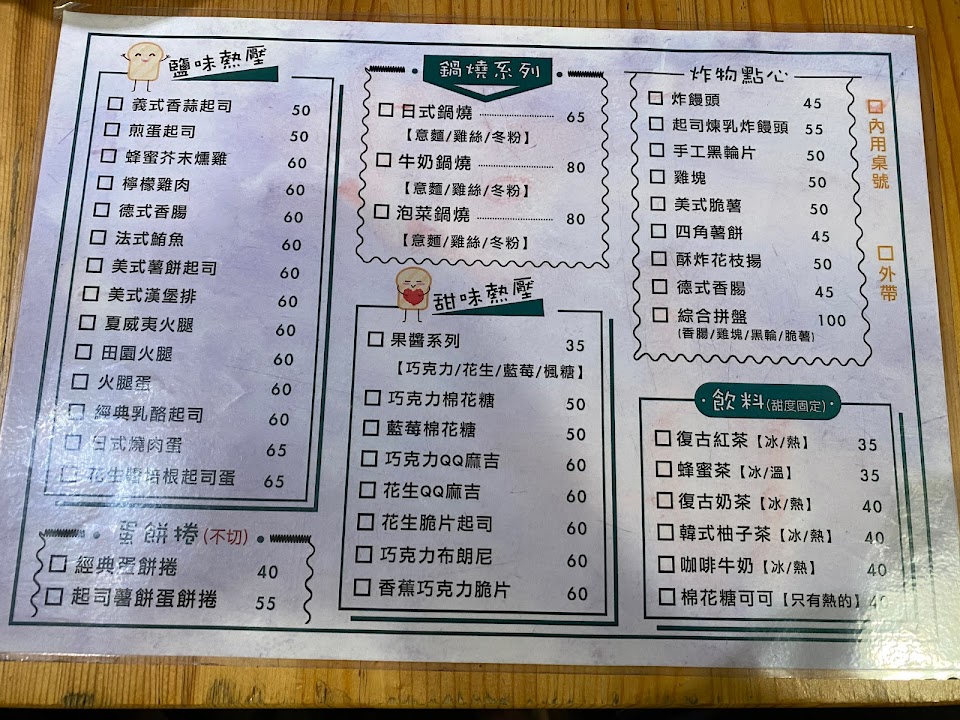 鹽味熱壓
義式香蒜起司 50
煎蛋起司 50
蜂蜜芥末燻雞 60
檸檬雞肉 60
德式香腸 60
法式鮪魚 60
美式薯餅起司 60
美式漢堡排 60
夏威夷火腿 60
田園火腿 60
火腿蛋 60
經典乳酪起司 60
日式燒肉蛋 65
花生醬培根起司蛋 65
蛋餅捲(不切)
經典蛋餅捲 40
起司薯餅蛋餅捲 55
鍋燒系列
日式鍋燒 65
【意麵/雞絲/冬粉】
牛奶鍋燒 80
【意麵/雞絲/冬粉】
泡菜鍋燒 80
【意麵/雞絲/冬粉】
甜味熱壓
果醬系列 35
【巧克力/花生/藍莓/楓糖】
巧克力棉花糖 50
藍莓棉花糖 50
巧克力QQ麻吉 60
花生QQ麻吉 60
花生脆片起司 60
巧克力布朗尼 60
香蕉巧克力脆片 60
炸物點心
炸饅頭 45
起司煉乳炸饅頭 55
手工黑輪片 50
雞塊 50
美式脆薯 50
四角薯餅 45
酥炸花枝揚 50
德式香腸 45
綜合拼盤 100
(香腸/雞塊/黑輪/脆薯)
飲料(甜度固定)
復古紅茶【冰/熱】 35
蜂蜜茶【冰/溫】 35
復古奶茶【冰/熱】 40
韓式柚子茶【冰/熱】 40
咖啡牛奶【冰/熱】 40
棉花糖可可【只有熱的】 40
內用桌號
外帶